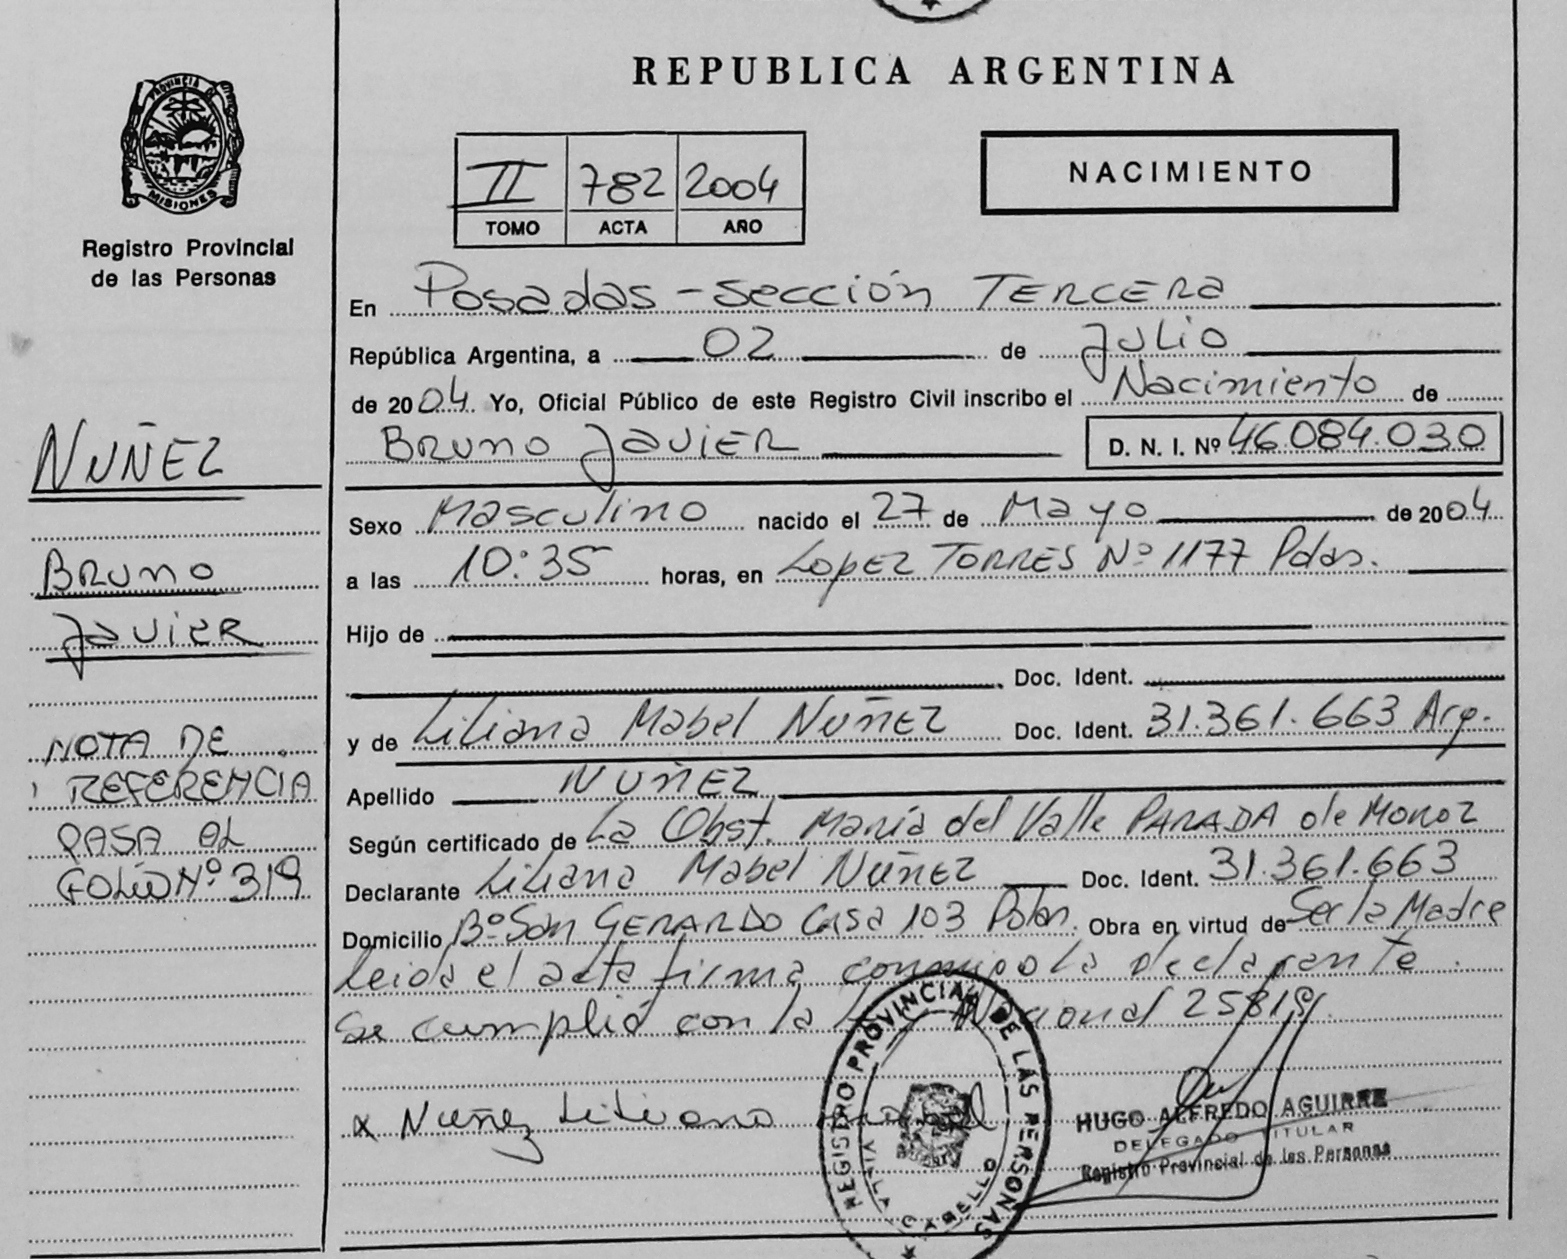 REPUBLICA ARGENTINA
PROVINCIA DE
MISIONES
Registro Provincial
de las Personas
II 782 2004
TOMO ACTA AÑO
NACIMIENTO
En Posadas - Sección TERCERA
República Argentina, a 02 de Julio
de 2004 Yo, Oficial Público de este Registro Civil inscribo el Nacimiento de
Bruno Javier D. N. I. Nº 46.084.030
NUÑEZ
Bruno
Javier
Sexo Masculino nacido el 27 de Mayo de 2004
a las 10:35 horas, en Lopez TORRES Nº 1177 Pdas.
Hijo de
Doc. Ident.
y de Liliana Mabel Nuñez Doc. Ident. 31.361.663 Arg.
Apellido NUÑEZ
Según certificado de La Obst. María del Valle PARADA de Monoz
Declarante Liliana Mabel Nuñez Doc. Ident. 31.361.663
Domicilio Bº San GERARDO Casa 103 Pdas. Obra en virtud de Ser la Madre
leida el acta firma conmigo la declarante.
Se cumplió con la Nacional 25819.
NOTA DE
REFERENCIA
PASA AL
FOLIO Nº 319
x Nuñez Liliana Mabel
REGISTRO PROVINCIAL DE LAS PERSONAS
VILLA CABELLO
HUGO ALFREDO AGUIRRE
DELEGADO TITULAR
Registro Provincial de las Personas